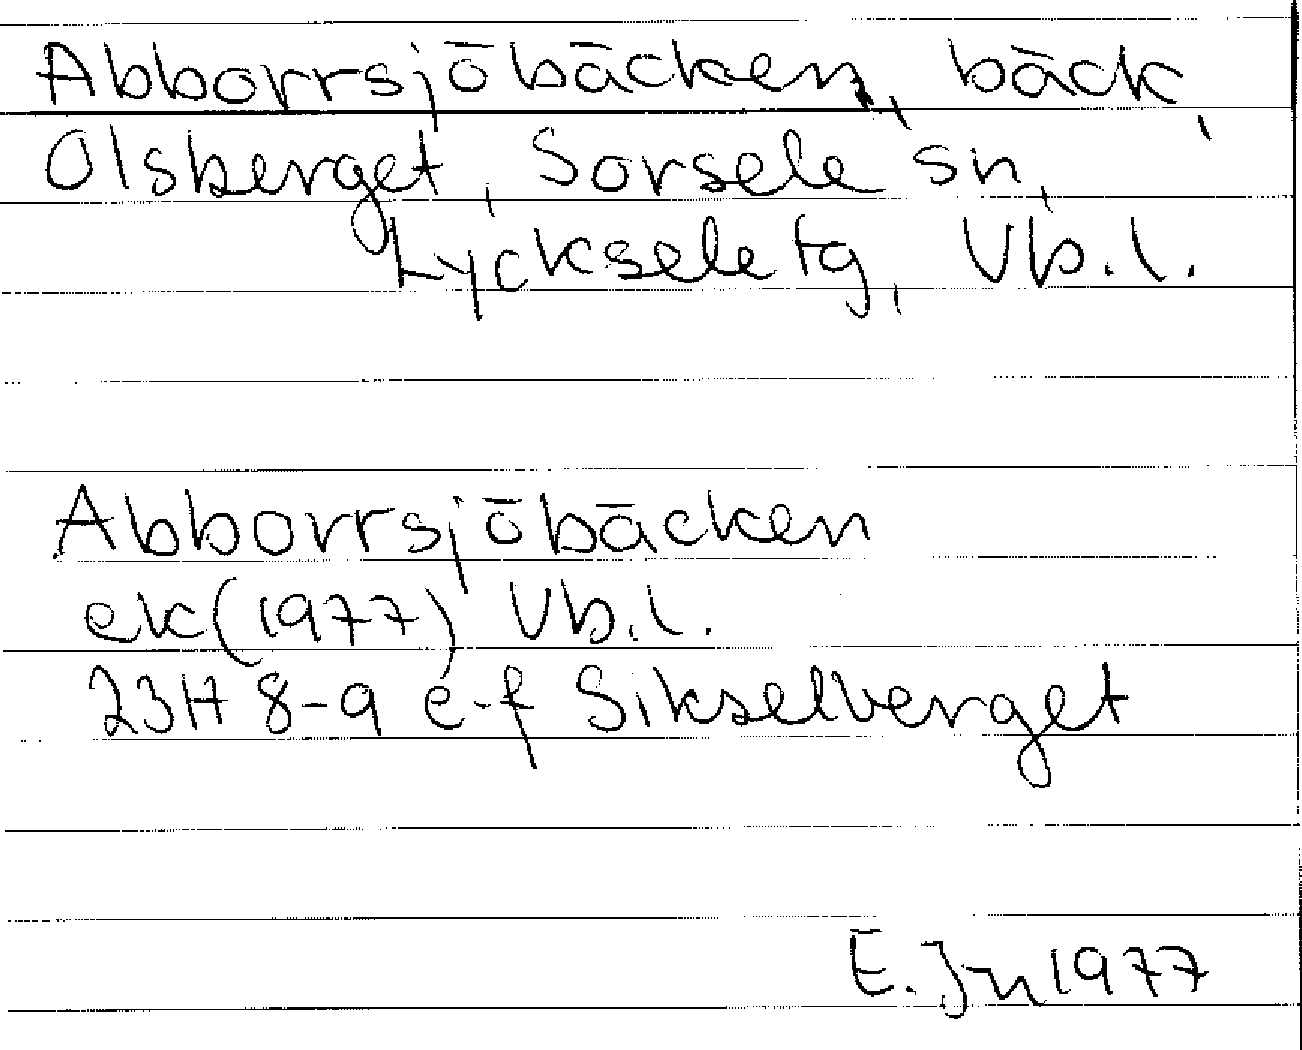 Abborrsjöbäcken, bäck,
Olsberget, Sorsele sn,
Lycksele tg, Vb.l.
Abborrsjöbäcken
ek(1977) Vb.l.
23H 8-9 e-f Sikselberget
E. Jn 1977